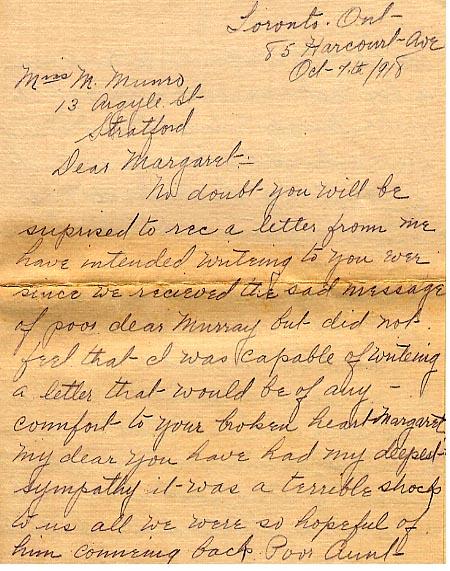 Toronto. Ont-
85 Harcourt-Ave
Oct-7th/918
Miss M. Munro
13 Argyle St-
Stratford
Dear Margaret-:
No doubt you will be
suprised to rec a letter from me
have intended writeing to you ever
since we recieved the sad message
of poor dear Murray but did not
feel that I was capable of writeing
a letter that would be of any -
comfort to your broken heart Margaret
my dear you have had my deepest-
sympathy it was a terrible shock
to us all we were so hopeful of
him comeing back. Poor Aunt-